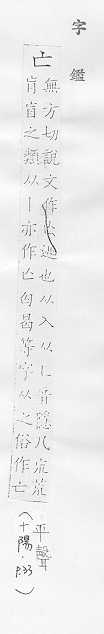 字鑑
亡
無方切說文作亾逃也从入从乚音隱凡巟荒
肓盲之類从亦作亾匃曷等字从之俗作亡
平聲
(十陽, P.33)